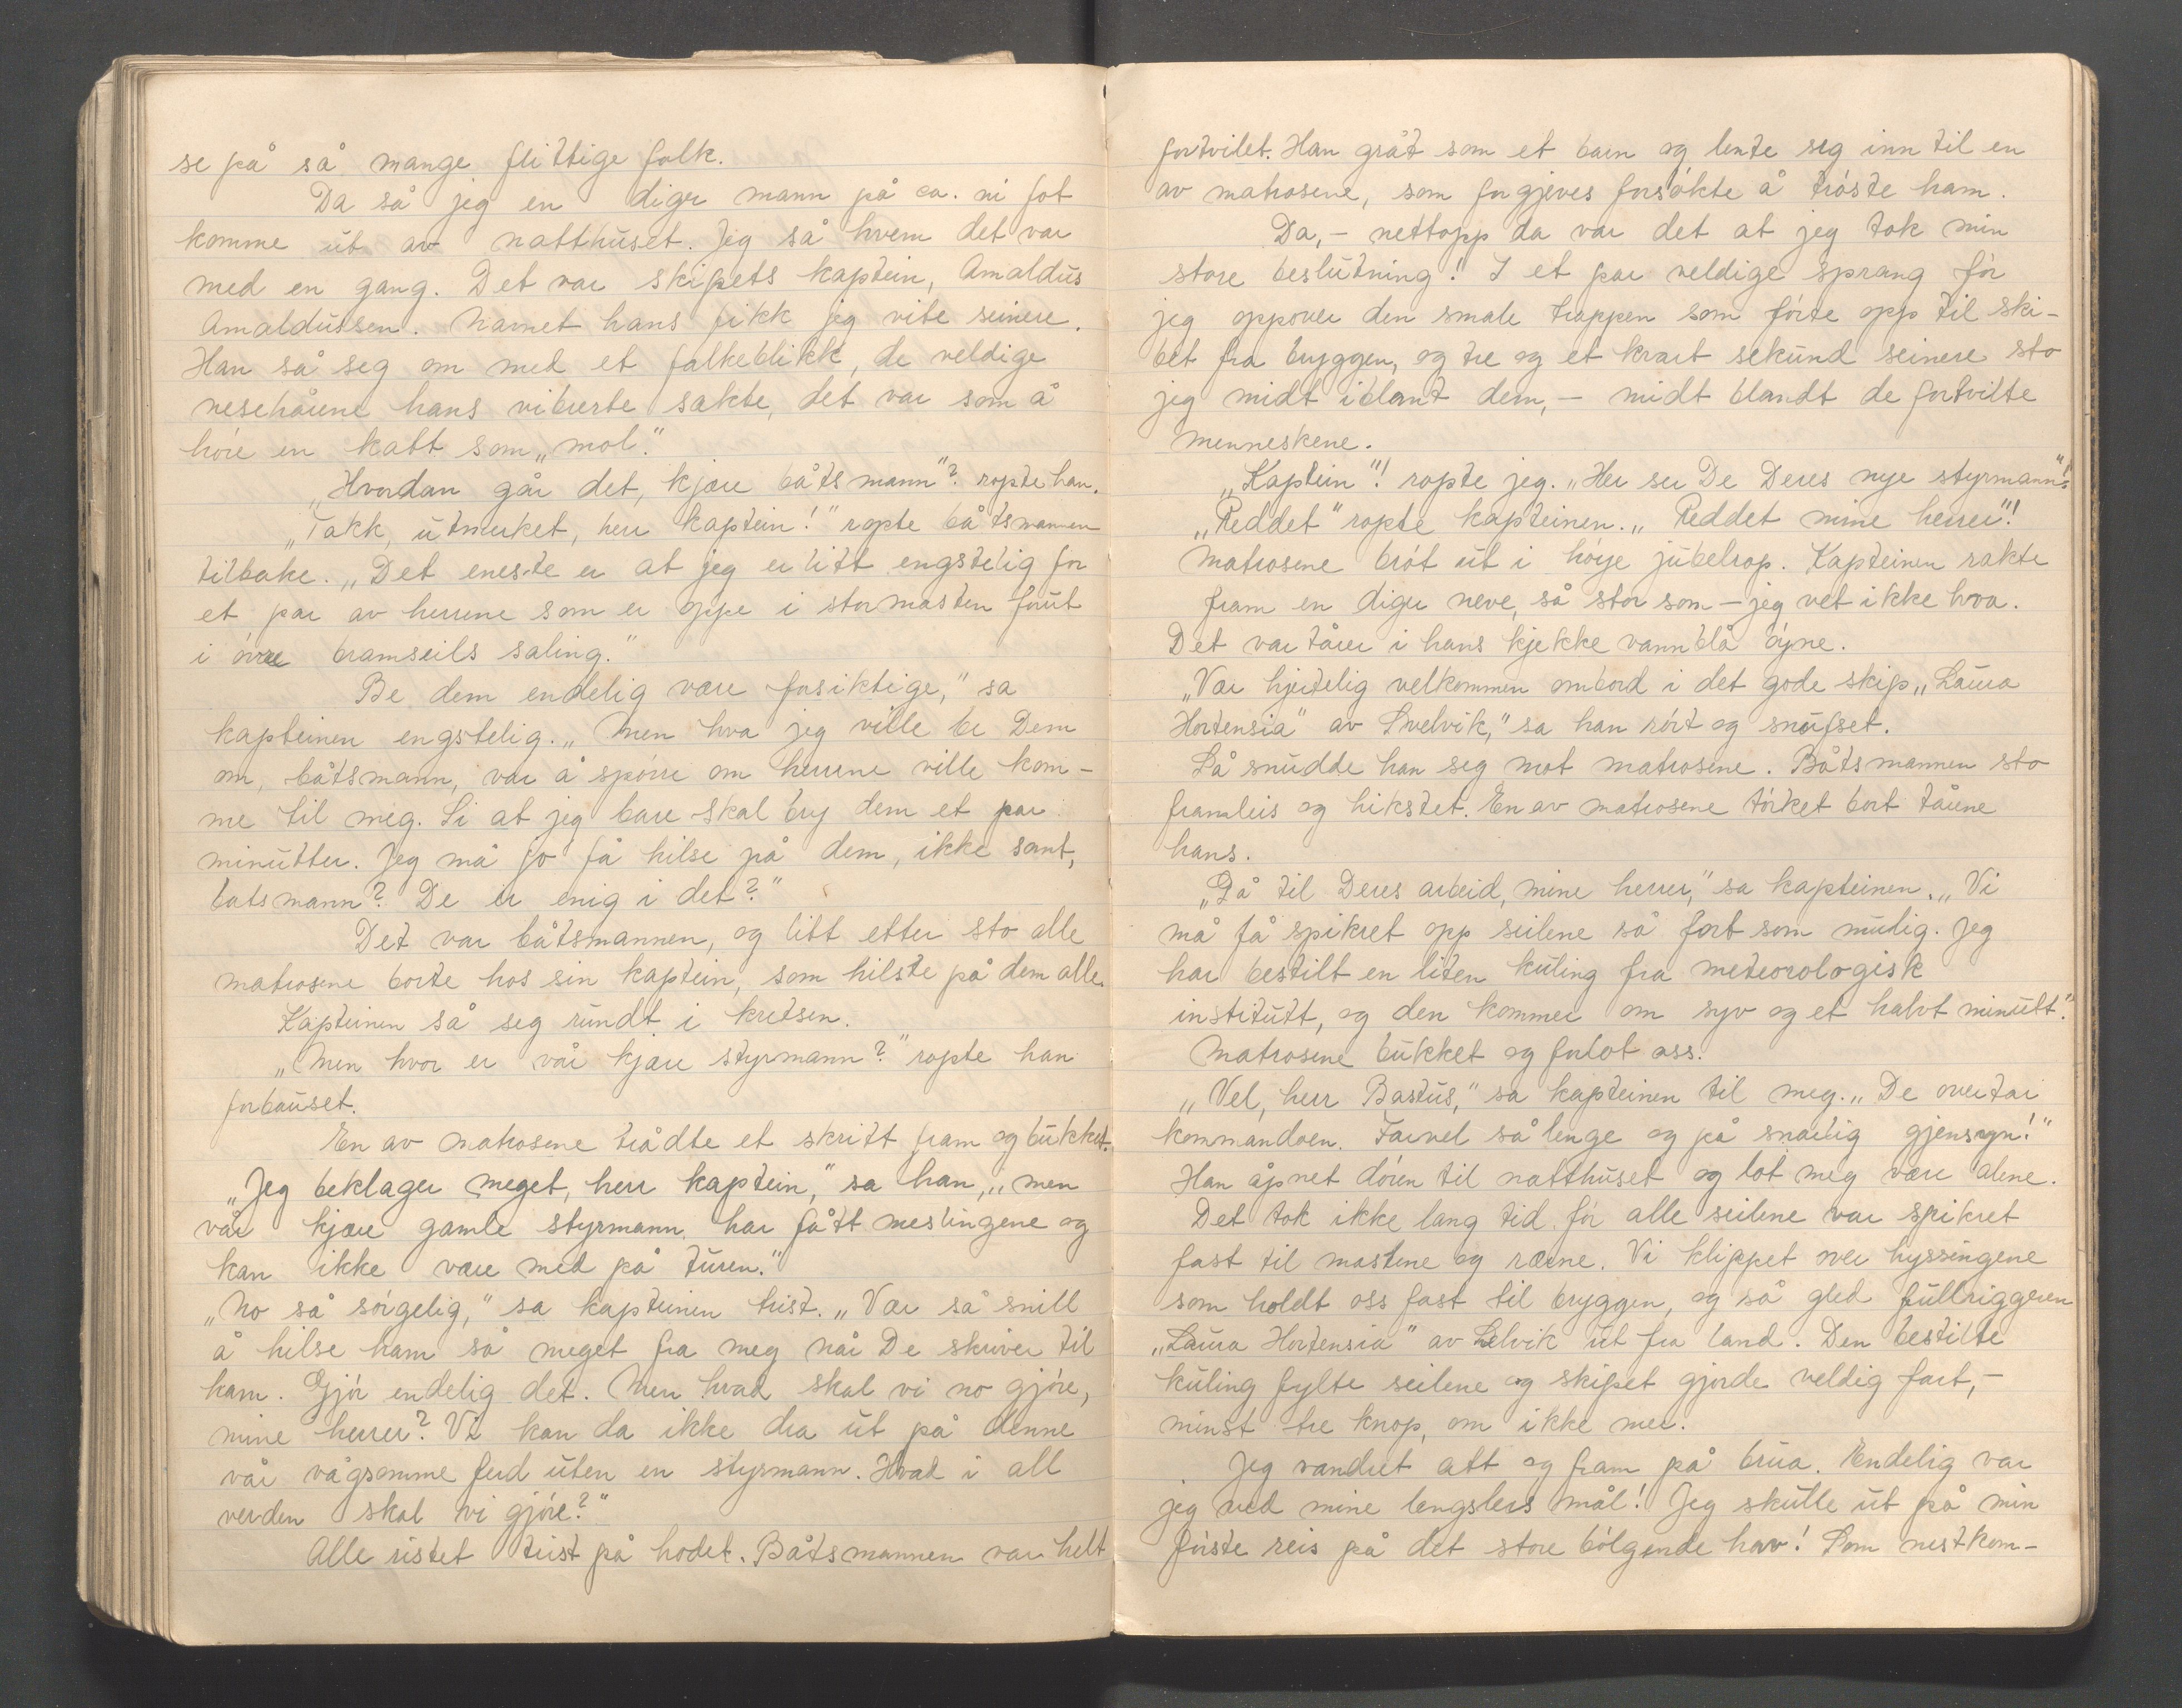 se på så mange flittige folk.
Da så jeg en diger mann på ca. ni fot
komme ut av natthuset. Jeg så hvem det var
med en gang. Det var skipets kaptein, Amaldus
Amaldussen. Navnet hans fikk jeg vite seinere.
Han så seg om med et falkeblikk, de veldige
nesehårene hans vibrerte sakte, det var som å
høre en katt som „mol".
„Hvordan går det, kjære båtsmann"? ropte han.
„Takk, utmerket, herr kaptein!" ropte båtsmannen
tilbake. „Det eneste er at jeg er litt engstelig for
et par av herrene som er oppe i stormasten forut
i øvre bramseils saling."
Be dem endelig være forsiktige," sa
kapteinen engstelig. „Men hva jeg ville be Dem
om, båtsmann, var å spørre om herrene ville kom-
me til meg. Si at jeg bare skal bry dem et par
minutter. Jeg må jo få hilse på dem, ikke sant,
batsmann? De er enig i det?"
Det var båtsmannen, og litt etter sto alle
matrosene borte hos sin kaptein, som hilste på dem alle.
Kapteinen så seg rundt i kretsen.
„Men hvor er vår kjære styrmann?" ropte han
forbauset.
En av matrosene trådte et skritt fram og bukket.
„Jeg beklager meget, herr kaptein," sa han, „men
vår kjære gamle styrmann har fått meslingene og
kan ikke være med på turen."
„No så sørgelig," sa kapteinen trist. „Vær så snill
å hilse ham så meget fra meg når De skriver til
ham. Gjør endelig det. Men hvad skal vi no gjøre,
mine herrer? Vi kan da ikke dra ut på denne
vår vågsomme ferd uten en styrmann. Hvad i all
verden skal vi gjøre?"
Alle ristet trist på hodet. Båtsmannen var helt
fortvilet. Han gråt som et barn og lente seg inn til en
av matrosene, som forgjeves forsøkte å trøste ham.
Da, - nettopp da var det at jeg tok min
store beslutning! I et par veldige sprang fór
jeg oppover den smale trappen som førte opp til ski-
bet fra bryggen, og tre og et kvart sekund seinere sto
jeg midt iblant dem, - midt blandt de fortvilte
menneskene.
„Kaptein"! ropte jeg. „Her ser De Deres nye styrmann"!
„Reddet" ropte kapteinen. „Reddet mine herrer"!
Matrosene brøt ut i høye jubelrop. Kapteinen rakte
fram en diger neve, så stor som - jeg vet ikke hva.
Det var tårer i hans kjekke vannblå øyne.
„Vær hjertelig velkommen ombord i det gode skip „Laura
Hortensia" av Svelvik," sa han rørt og snufset.
Så snudde han seg mot matrosene. Båtsmannen sto
framleis og hikstet. En av matrosene tørket bort tårene
hans.
„Gå til Deres arbeid, mine herrer," sa kapteinen. „Vi
må få spikret opp seilene så fort som mulig. Jeg
har bestilt en liten kuling fra meteorologisk
institutt, og den kommer om syv og et halvt minutt."
Matrosene bukket og forlot oss.
„Vel, herr Bastus," sa kapteinen til meg. „De overtar
kommandoen. Farvel så lenge og på snarlig gjensyn!"
Han åpnet døren til natthuset og lot meg være alene.
Det tok ikke lang tid før alle seilene var spikret
fast til mastene og rærne. Vi klippet over hyssingene
som holdt oss fast til bryggen, og så gled fullriggeren
„Laura Hortensia" av Selvik ut fra land. Den bestilte
kuling fylte seilene og skipet gjorde veldig fart, -
minst tre knop, om ikke mer.
Jeg vandret att og fram på brua. Endelig var
jeg ved mine lengslers mål! Jeg skulle ut på min
første reis på det store bølgende hav! Som nestkom-